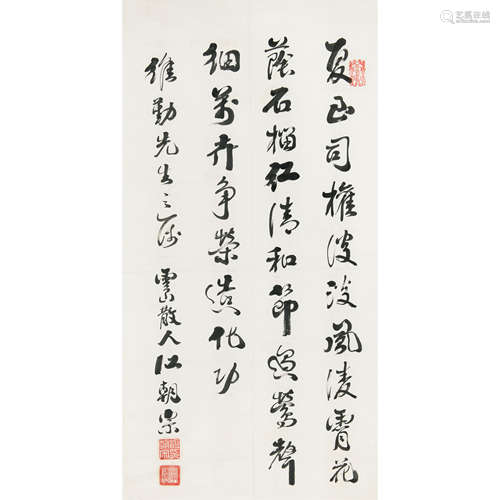 夏正司權風凌霄花
蔭石榴紅清和節過鶯聲
細萬卉爭榮造化功
維勤先生之屬 雲山散人江朝宗
艺狐在线